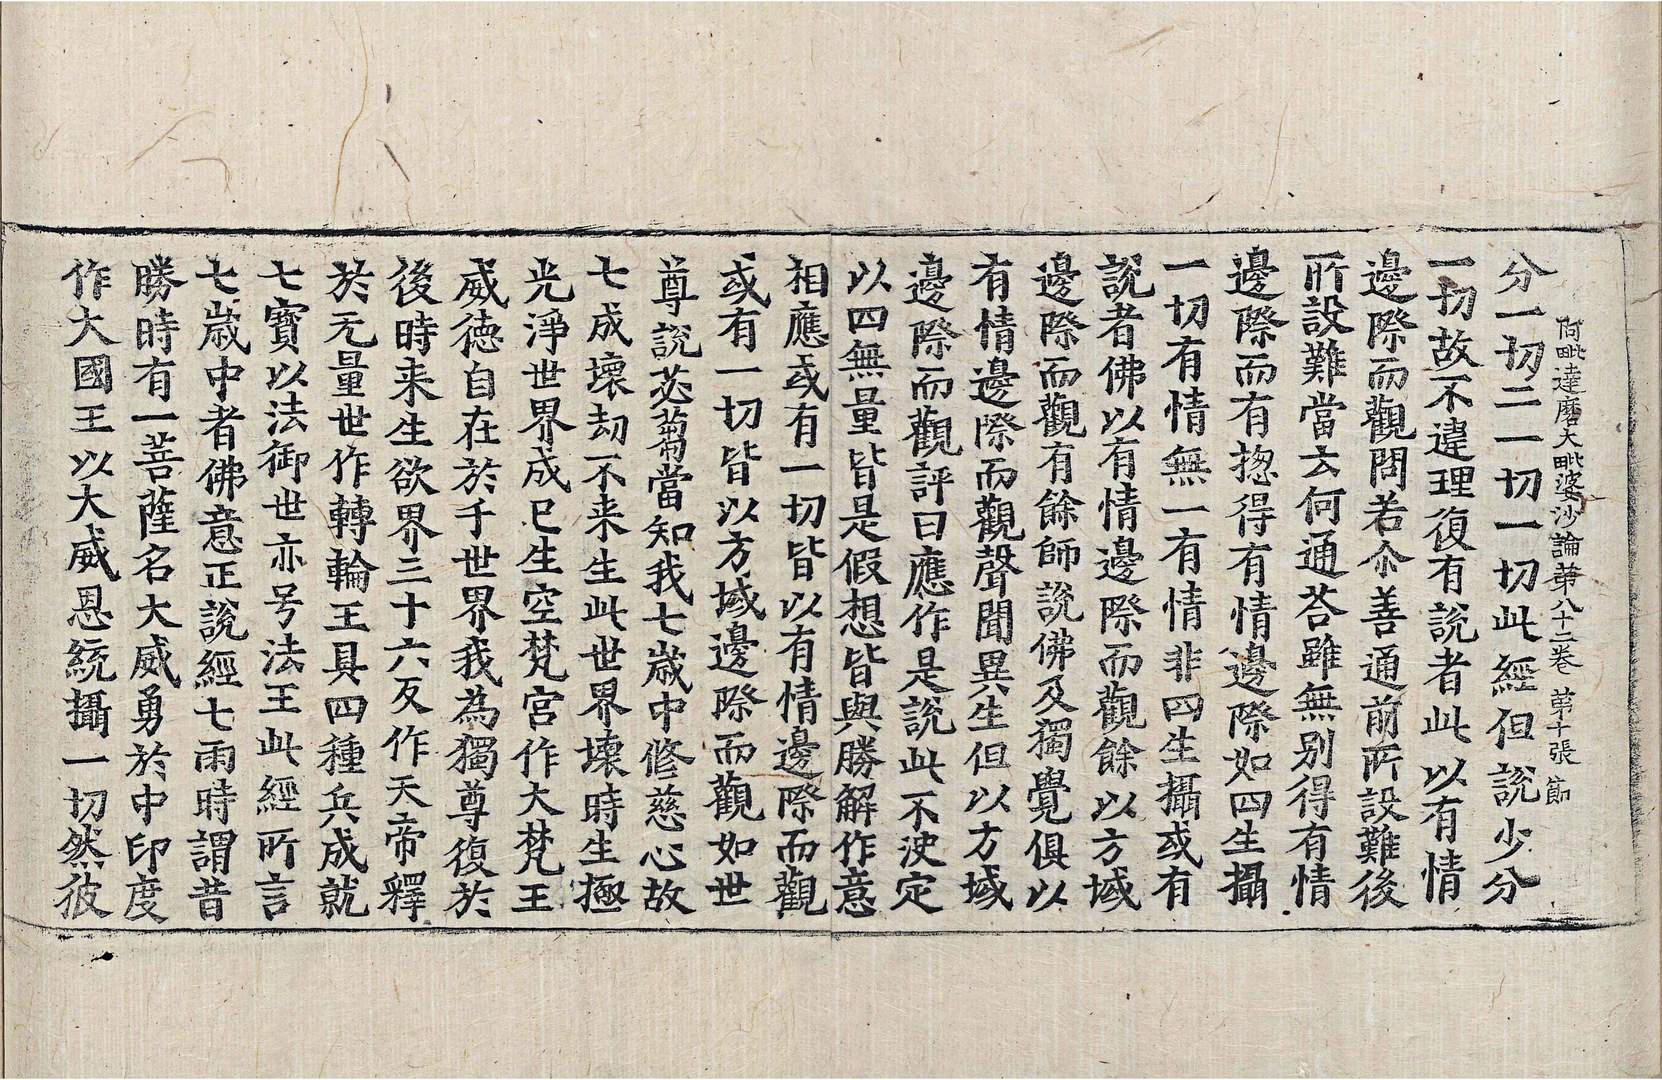 阿毗達磨大毗婆沙論第八十二卷 第十張 節
分一切二一切一切此經但說少分
一切故不違理復有說者此以有情
邊際而觀問若尒善通前所設難後
所設難當云何通荅雖無別得有情
邊際而有揔得有情邊際如四生攝
一切有情無一有情非四生攝或有
說者佛以有情邊際而觀餘以方域
邊際而觀有餘師說佛及獨覺俱以
有情邊際而觀聲聞異生但以方域
邊際而觀評曰應作是說此不決定
以四無量皆是假想皆與勝解作意
相應或有一切皆以有情邊際而觀
或有一切皆以方域邊際而觀如世
尊說苾蒭當知我七歲中修慈心故
七成壞劫不来生此世界壞時生極
光淨世界成已生空梵宮作大梵王
威德自在於千世界我為獨尊復於
後時来生欲界三十六反作天帝釋
於无量世作轉輪王具四種兵成就
七寶以法御世亦号法王此經所言
七歲中者佛意正說經七雨時謂昔
勝時有一菩薩名大威勇於中印度
作大國王以大威恩統攝一切然彼